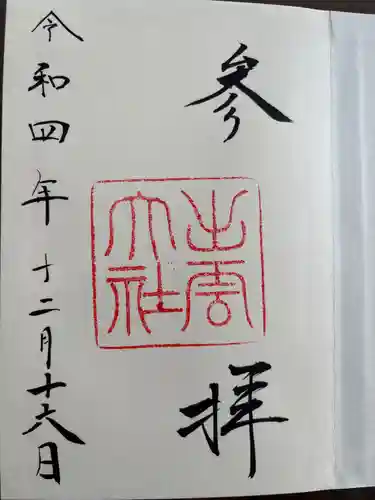 参拝
出雲
大社
令和四年十二月十六日